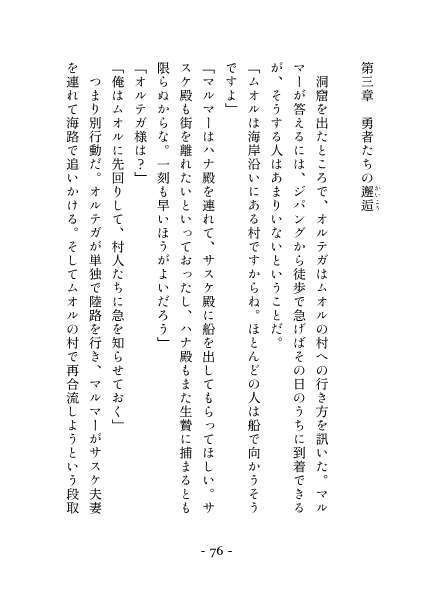 第三章　勇者たちの邂逅
かいこう
　洞窟を出たところで、オルテガはムオルの村への行き方を訊いた。マル
マーが答えるには、ジパングから徒歩で急げばその日のうちに到着できる
が、そうする人はあまりいないということだ。
「ムオルは海岸沿いにある村ですからね。ほとんどの人は船で向かうそう
ですよ」
「マルマーはハナ殿を連れて、サスケ殿に船を出してもらってほしい。サ
スケ殿も街を離れたいといっておったし、ハナ殿もまた生贄に捕まるとも
限らぬからな。一刻も早いほうがよいだろう」
「オルテガ様は？」
「俺はムオルに先回りして、村人たちに急を知らせておく」
　つまり別行動だ。オルテガが単独で陸路を行き、マルマーがサスケ夫妻
を連れて海路で追いかける。そしてムオルの村で再合流しようという段取
- 76 -